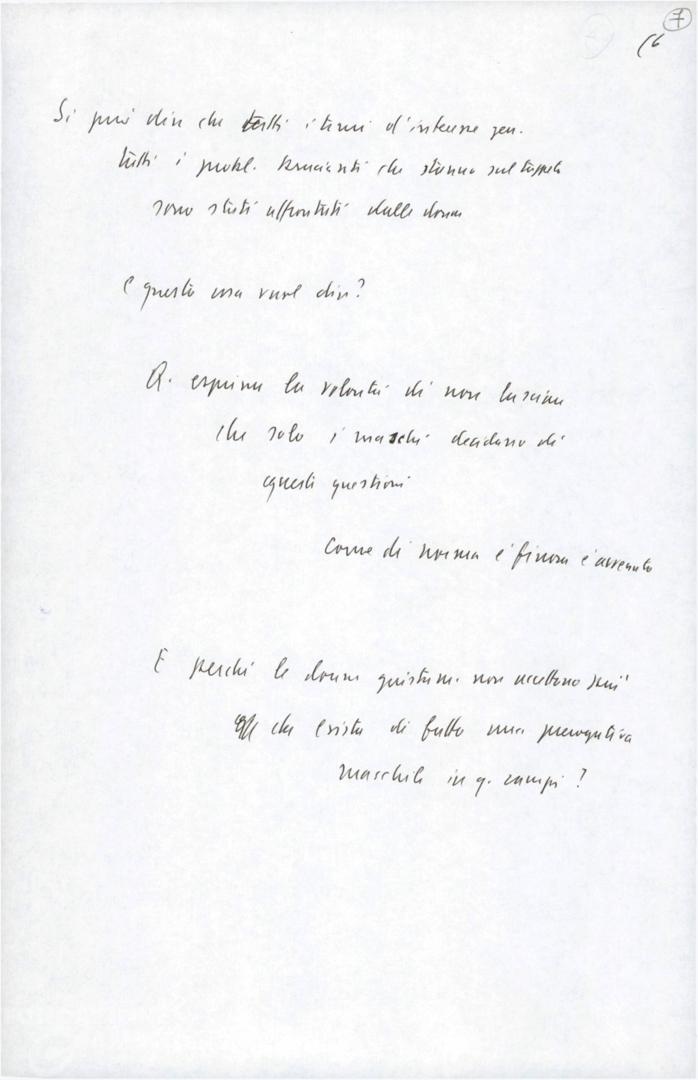 7
16
Si può dire che tutti i temi d'interesse gen.
tutti i probl. brucianti che stanno sul tappeto
sono stati affrontati dalle donne
E questo cosa vuol dire?
Q. esprime la volontà di non lasciare
che solo i maschi decidano di
questi questioni
come di norma è finora è avvenuto
E perché le donne giustam. non accettano più
che esista di fatto una prerogativa
maschile in q. campi?